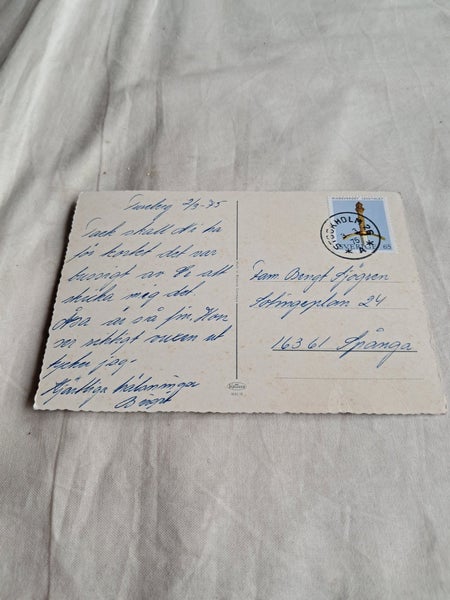 Tureberg 2/3-75
Tack skall Ni ha
för kortet det var
hussigt av Er att
skicka mig det.
Åsa är så fin. Hon
ser riktigt vuxen ut
tycker jag.
Hjärtliga hälsningar
Birgit
STOCKHOLM
75
SVERIGE 65
Fam. Bengt Sjögren
Solingeplan 24
163 61 Spånga